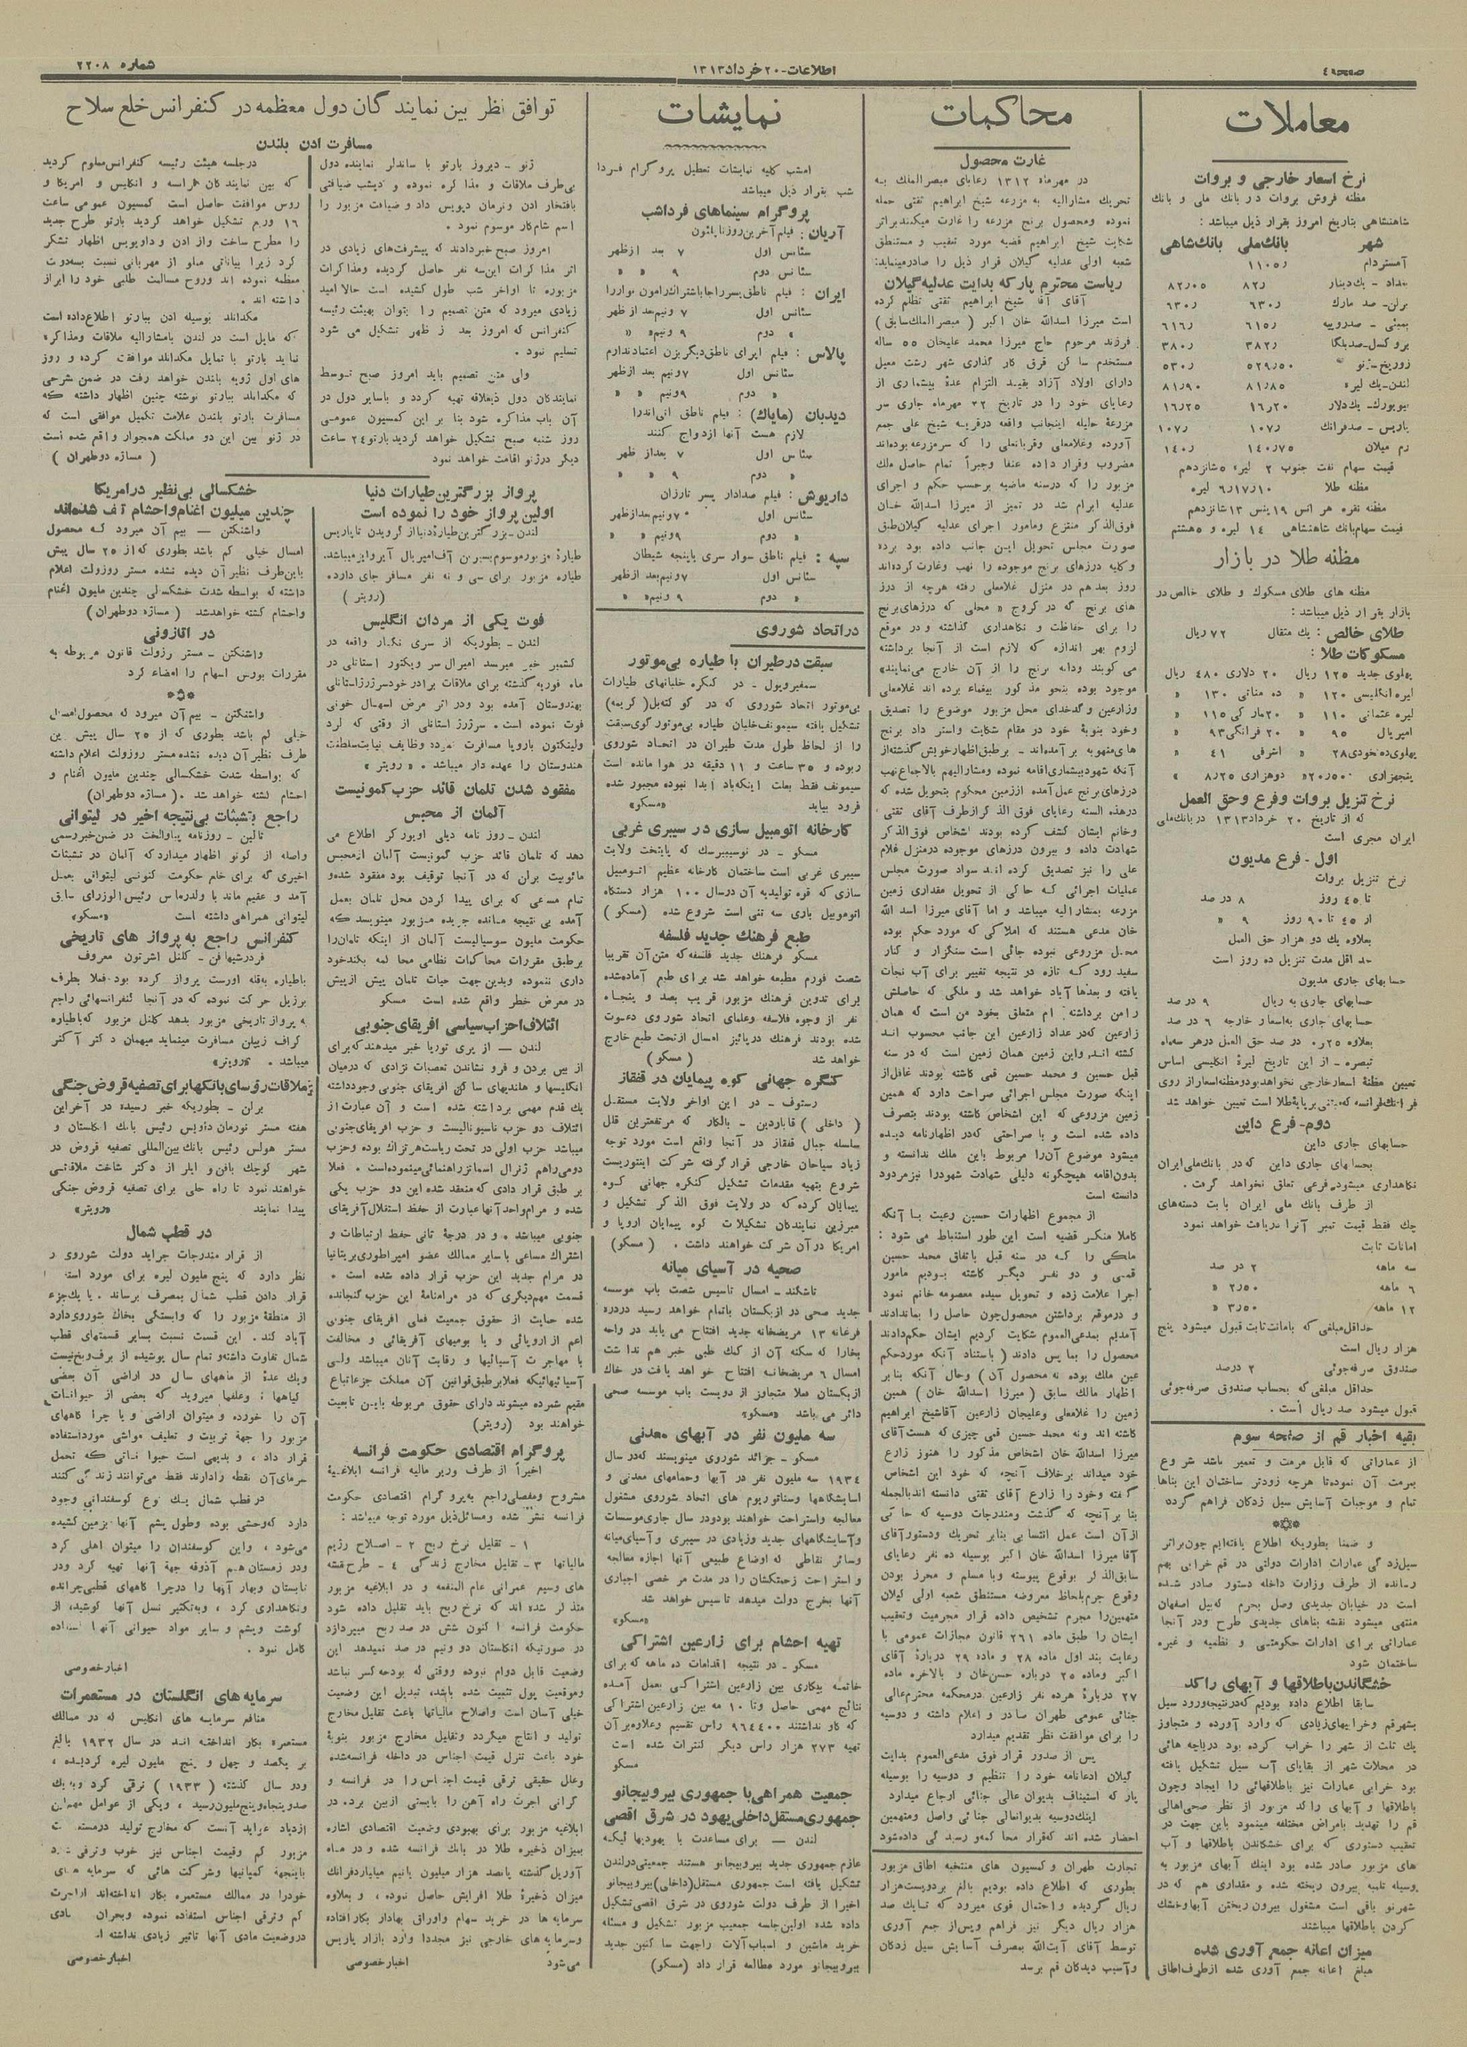 صفحه ٤
اطلاعات - ۲۰ خرداد ۱۳۱۳
شماره ۲۲۰۸
معاملات
نرخ اسعار خارجی و بروات
مظنه فروش بروات در بانك ملی و بانك
شاهنشاهی بتاریخ امروز بقرار ذیل میباشد :
شهر بانك‌ملی بانك‌شاهی
آمستردام ۱۱۰۵ر
بغداد - یك دینار ۸۲ر ۸۲ر۰۵
برلن - صد مارك ۶۳۰ر ۶۳۰ر
بمبئی - صدروپیه ۶۱۵ر ۶۱۶ر
بروکسل - صدبلگا ۳۸۲ر ۳۸۰ر
زوریخ - ژنو ۵۲۹ر۵۰ ۵۳۰ر
لندن - یك لیره ۸۱ر۸۵ ۸۱ر۹۰
نیویورك - یك دلار ۱۶ر۲۰ ۱۶ر۲۵
پاریس - صدفرانك ۱۰۷ر ۱۰۷ر
رم میلان ۱۴۰ر۷۵ ۱۴۰ر
قیمت سهام نفت جنوب ۲ لیره ۵ شانزدهم
مظنه طلا ۶ر۱۷ر۱۰ لیره
مظنه نقره هر انس ۱۹ پنس ۱۳ شانزدهم
قیمت سهام بانك شاهنشاهی ۱۴ لیره و ۵ هشتم
مظنه طلا در بازار
مظنه های طلای مسکوك و طلای خالص در
بازار بقرار ذیل میباشد :
طلای خالص : یك مثقال ۷۲ ریال
مسکوکات طلا :
پهلوی جدید ۱۲۵ ریال ۲۰ دلاری ۴۸۰ ریال
لیره انگلیسی ۱۲۰ » ده مناتی ۱۳۰ »
لیره عثمانی ۱۱۰ » ۲۰ مارکی ۱۱۵ »
امپریال ۹۵ » ۲۰ فرانکی ۹۳ »
اشرفی ۴۱ »
پنجهزاری ۲۰ر۵۰۰ » دوهزاری ۸ر۲۵ »
نرخ تنزیل بروات وفرع وحق العمل
که از تاریخ ۲۰ خرداد ۱۳۱۳ در بانك ملی
ایران مجری است
اول - فرع مدیون
نرخ تنزیل بروات
تا ۴۵ روز ۸ در صد
از ۴۵ تا ۹۰ روز ۹ »
بعلاوه یك دو هزار حق العمل
حد اقل مدت تنزیل ده روز است
حسابهای جاری مدیون
حسابهای جاری به ریال ۹ در صد
حسابهای جاری به اسعار خارجه ۶ در صد
بعلاوه ۲۵ر۰ در صد حق العمل در هر سه ماه
تبصره - از این تاریخ لیرهٔ انگلیسی اساس
تعیین مظنهٔ اسعار خارجی نخواهد بود و مظنه اسعار از روی
فرانك فرانسه که مبتنی بر پایهٔ طلا است تعیین خواهد شد
دوم - فرع داین
حسابهای جاری داین
بحسابهای جاری داین که در بانك ملی ایران
نگاهداری میشود فرعی تعلق نخواهد گرفت .
از طرف بانك ملی ایران بابت دسته‌های
چك فقط قیمت تمبر آنرا دریافت خواهد نمود
امانات ثابت
سه ماهه ۲ در صد
۶ ماهه ۲ر۵۰ »
۱۲ ماهه ۳ر۵۰ »
حداقل مبلغی که بامانت ثابت قبول میشود پنج
هزار ریال است
صندوق صرفه‌جوئی ۲ درصد
حداقل مبلغی که بحساب صندوق صرفه‌جوئی
قبول میشود صد ریال است .
بقیه اخبار قم از صفحه سوم
از عماراتی که قابل مرمت و تعمیر باشد شروع
بمرمت آن نموده تا هرچه زودتر ساختمان این بناها
تمام و موجبات آسایش سیل زدکان فراهم گردد
و ضمنا بطوریکه اطلاع یافته‌ایم چون براثر
سیل‌زدگی عمارات ادارات دولتی در قم خرابی بهم
رسانده از طرف وزارت داخله دستور صادر شده
است در خیابان جدیدی وصل بحرم که بپل اصفهان
منتهی میشود نقشه بناهای جدیدی طرح ودر آنجا
عماراتی برای ادارات حکومتی و نظمیه و غیره
ساختمان شود
خشگاندن باطلاقها و آبهای راکد
سابقا اطلاع داده بودیم که در نتیجه ورود سیل
بشهر قم وخرابیهای زیادی که وارد آورده و متجاوز
یك ثلث از شهر را خراب کرده بود دریاچه هائی
در محلات شهر از بقایای آب سیل تشکیل یافته
بود خرابی عمارات نیز باطلاقهائی را ایجاد وچون
باطلاقها و آبهای راکد مزبور از نظر صحی اهالی
قم را تهدید بامراض مختلفه مینمود باین جهت در
تعقیب دستوری که برای خشگاندن باطلاقها و آب
های مزبور صادر شده بود اینك آبهای مزبور به
وسیله تلمبه بیرون ریخته شده و مقداری هم که در
شهر نو باقی است مشغول بیرون ریختن آبها وخشك
کردن باطلاقها میباشند
میزان اعانه جمع آوری شده
مبلغ اعانه جمع آوری شده از طرف اطاق
محاکمات
غارت محصول
در مهرماه ۱۳۱۲ رعایای مبصر الملك به
تحریك مشارالیه به مزرعه شیخ ابراهیم ثقتی حمله
نموده ومحصول برنج مزرعه را غارت میکنند براثر
شکایت شیخ ابراهیم قضیه مورد تعقیب و مستنطق
شعبه اولی عدلیه گیلان قرار ذیل را صادر مینماید:
ریاست محترم پارکه بدایت عدلیه گیلان
آقای آقا شیخ ابراهیم ثقتی تظلم کرده
است میرزا اسدالله خان اکبر ( مبصر الملك سابق )
فرزند مرحوم حاج میرزا محمد علیخان ۵۵ ساله
دارای اولاد آزاد بقید التزام عدهٔ بیشماری از
رعایای خود را در تاریخ ۲۲ مهرماه جاری سر
آورده وغلامعلی وقربانعلی را که سر مزرعه بوده‌اند
مضروب وقرار داده عنفا وجبراً تمام حاصل ملك
مزبور را که در سنه ماضیه برحسب حکم و اجرای
عدلیه ابرام شد در تمیز از میرزا اسدالله خان
فوق الذکر منتزع ومامور اجرای عدلیه گیلان طبق
صورت مجلس تحویل این جانب داده بود برده
وکلیه درزهای برنج موجوده را نهب وغارت کرده‌اند
روز بعد هم در منزل غلامعلی رفته هرچه از درز
های برنج که در کروج « محلی که درزهای برنج
را برای حفاظت و نگاهداری گذاشته و در موقع
لزوم بهر اندازه که لازم است از آنجا برداشته
می کوبند ودانه برنج را از آن خارج می‌نمایند»
موجود بوده بنحو مذکور بیغماء برده اند غلامعلی
وزارعین و کدخدای محل مزبور موضوع را تصدیق
وخود بنوبهٔ خود در مقام شکایت واسترداد برنج
های منهوبه برآمده‌اند - برطبق اظهار خویش گذشته از
آنکه شهود بیشماری اقامه نموده ومشارالیهم بالاجماع نهب
درزهای برنج عمل‌آمده اززمین محکوم بتحویل شده که
درهذه السنه رعایای فوق الذکر از طرف آقای ثقتی
وخانم ایشان کشف کرده بودند اشخاص فوق الذکر
شهادت داده و بیرون درزهای موجوده در منزل غلام
علی را نیز تصدیق کرده اند سواد صورت مجلس
عملیات اجرائی که حاکی از تحویل مقداری زمین
مزرعه بمشارالیه میباشد و اما آقای میرزا اسد الله
خان مدعی هستند که املاکی که مورد حکم بوده
محل مزروعی نبوده جائی است سنگزار و کنار
سفید رود که تازه در نتیجه تغییر برای آب نجات
یافته و بعدها آباد خواهد شد و ملکی که حاصلش
را من برداشته ام متعلق بخود من است که همان
زارعین که در عداد زارعین این جانب محسوب اند
کشته اند واین زمین همان زمین است که در سنه
قبل حسین و محمد حسین قمی کاشته بودند غافل از
اینکه صورت مجلس اجرائی صراحت دارد که همین
زمین مزروعی که این اشخاص کاشته بودند بتصرف
داده شده است و با صراحتی که در اظهارنامه دیده
میشود موضوع آن‌را مربوط باین ملك ندانسته و
بدون اقامه هیچگونه دلیلی شهادت شهود را نیز مردود
دانسته است
از مجموع اظهارات حسین رعیت با آنکه
کاملا منکر قضیه است این طور استنباط می شود :
ملکی را که در سنه قبل باتفاق محمد حسین
قمی و دو نفر دیگر کاشته بودیم مامور
اجرا علامت زده و تحویل سیده معصومه خانم نمود
و در موقع برداشتن محصول چون حاصل را بماندادند
آمدیم بمدعی‌العموم شکایت کردیم ایشان حکم دادند
محصول را بما پس دادند ( باستناد آنکه مورد حکم
عین ملك بوده نه محصول آن ) وحال آنکه بنابر
اظهار مالك سابق ( میرزا اسدالله خان ) همین
زمین را غلامعلی وعلیجان زارعین آقاشیخ ابراهیم
کاشته اند ونه محمد حسین قمی چیزی که هست آقای
میرزا اسدالله خان اشخاص مذکور را هنوز زارع
خود میداند برخلاف آنچه که خود این اشخاص
گفته وخود را زارع آقای ثقتی دانسته اند بالجمله
بنا برآنچه که گذشت ومندرجات دوسیه که حاکی
از آن است عمل انتسابی بنابر تحریك ودستور آقای
آقا میرزا اسدالله خان اکبر بوسیله ده نفر رعایای
سابق الذکر بوقوع پیوسته وبا مسلم و محرز بودن
وقوع جرم بلحاظ معروضه مستنطق شعبه اولی گیلان
متهمین را مجرم تشخیص داده قرار مجرمیت وتعقیب
ایشان را طبق ماده ۲۶۱ قانون مجازات عمومی با
رعایت بند اول ماده ۲۸ و ماده ۲۹ دربارهٔ آقای
اکبر وماده ۲۵ درباره حسن‌خان و بالاخره ماده
۲۷ دربارهٔ هرده نفر زارعین در محکمه محترم عالی
جنائی عمومی طهران صادر و اعلام داشته و دوسیه
را برای موافقت نظر تقدیم میدارد
پس از صدور قرار فوق مدعی‌العموم بدایت
گیلان ادعانامه خود را تنظیم و دوسیه را بوسیله
پار که استیناف بدیوان عالی جنائی ارجاع میدارد
اینك دوسیه بدیوانعالی جنائی واصل ومتهمین
احضار شده اند که قرار محاکمه و رسیدگی داده شود
تجارت طهران و کمسیون های منتخبه اطاق مزبور
بطوری که اطلاع داده بودیم بالغ بر دویست هزار
ریال گردیده و احتمال قوی میرود که تایك صد
هزار ریال دیگر نیز فراهم وپس از جمع آوری
توسط آقای آیت‌الله بمصرف آسایش سیل زدکان
وآسیب دیدکان قم برسد
نمایشات
امشب کلیه نمایشات تعطیل پروگرام فردا
شب بقرار ذیل میباشد
پروگرام سینماهای فرداشب
آریان : فیلم آخرین روز ناپلئون
سئانس اول ۷ بعد ازظهر
سئانس دوم ۹ » »
سئانس اول ۷ ونیم بعد از ظهر
» دوم ۹ ونیم » »
پالاس : فیلم اپرای ناطق دیگر بزن اعتماد ندارم
سئانس اول ۷ ونیم بعد ازظهر
» دوم ۹ ونیم » »
دیدبان (مایاك) : فیلم ناطق آنی اندرا
لازم هست آنها ازدواج کنند
سئانس اول ۷ بعداز ظهر
» دوم ۹ » »
داریوش : فیلم صدادار پسر تارزان
سئانس اول ۷ ونیم بعد از ظهر
» دوم ۹ ونیم » »
سپه : فیلم ناطق سوار سری یا پنجه شیطان
سئانس اول ۷ ونیم بعد ازظهر
» دوم ۹ ونیم » »
در اتحاد شوروی
سبقت در طیران با طیاره بی‌موتور
سمفیروپول - در کنگره خلبانهای طیارات
بی‌موتور اتحاد شوروی که در کوکتبل ( کریمه )
تشکیل یافته سیمونف خلبان طیاره بی‌موتور گوی سبقت
را از لحاظ طول مدت طیران در اتحاد شوروی
ربوده و ۳۵ ساعت و ۱۱ دقیقه در هوا مانده است
سیمونف فقط بعلت اینکه باد ابدا نبوده مجبور شده
فرود بیاید «مسکو»
کارخانه اتومبیل سازی در سیبری غربی
مسکو - در نوسیبیرسك که پایتخت ولایت
سیبری غربی است ساختمان کارخانه عظیم اتومبیل
سازی که قوه تولیدیه آن درسال ۱۰۰ هزار دستگاه
اتوموبیل باری سه تنی است شروع شده ( مسکو )
طبع فرهنك جدید فلسفه
مسکو فرهنك جدید فلسفه که متن آن تقریبا
شصت فورم مطبعه خواهد شد برای طبع آماده شده
برای تدوین فرهنك مزبور قریب بصد و پنجاه
نفر از وجوه فلاسفه وعلمای اتحاد شوروی دعوت
شده بودند فرهنك در پائیز امسال از تحت طبع خارج
خواهد شد ( مسکو )
کنگره جهانی کوه پیمایان در قفقاز
رستوف - در این اواخر ولایت مستقل
( داخلی ) قاباردین - بالکار که مرتفعترین قلل
سلسله جبال قفقاز در آنجا واقع است مورد توجه
زیاد سیاحان خارجی قرار گرفته شرکت اینتوریست
شروع بتهیه مقدمات تشکیل کنگره جهانی کوه
پیمایان کرده که در ولایت فوق الذکر تشکیل و
مبرزین نمایندگان تشکیلات کوه پیمایان اروپا و
امریکا در آن شرکت خواهند داشت . ( مسکو )
صحیه در آسیای میانه
تاشکند - امسال تاسیس شصت باب موسسه
جدید صحی در ازبکستان باتمام خواهد رسید در دره
فرغانه ۱۳ مریضخانه جدید افتتاح می یابد در واحه
بخارا که سکنه آن از کمك طبی خبر هم نداشت
امسال ۶ مریضخانه افتتاح خواهد یافت در خاك
ازبکستان فعلا متجاوز از دویست باب موسسه صحی
دائر می‌باشد «مسکو»
سه ملیون نفر در آبهای معدنی
مسکو - جرائد شوروی مینویسند که در سال
۱۹۳۴ سه ملیون نفر در آبها وحمامهای معدنی و
آسایشگاهها وسناتوریوم های اتحاد شوروی مشغول
معالجه واستراحت خواهند بود در سال جاری موسسات
وآسایشگاههای جدید وزیادی در سیبری و آسیای میانه
وسائر نقاطی که اوضاع طبیعی آنها اجازه معالجه
و استراحت زحمتکشان را در مدت مرخصی اجباری
آنها بخرج دولت میدهد تاسیس خواهد شد
«مسکو»
تهیه احشام برای زارعین اشتراکی
مسکو - در نتیجه اقدامات ده ماهه که برای
خاتمه بیگاوی بین زارعین اشتراکی بعمل آمده
نتائج مهمی حاصل وتا ۱۰ مه بین زارعین اشتراکی
که گاو نداشتند ۹۶۴۴۰۰ راس تقسیم وعلاوه برآن
تهیه ۲۷۳ هزار راس دیگر کنترات شده است
مسکو
جمعیت همراهی با جمهوری بیروبیجانو
جمهوری مستقل داخلی یهود در شرق اقصی
لندن - برای مساعدت با یهودیها ئیکه
عازم جمهوری جدید بیروبیجانو هستند جمعیتی در لندن
تشکیل یافته است جمهوری مستقل (داخلی) بیروبیجانو
اخیرا از طرف دولت شوروی در شرق اقصی تشکیل
داده شده اولین جلسه جمعیت مزبور تشکیل و مسئله
خرید ماشین و اسباب‌آلات راجهت ساکنین جدید
بیروبیجانو مورد مطالعه قرار داد (مسکو)
توافق نظر بین نمایندگان دول معظمه در کنفرانس خلع سلاح
مسافرت ادن بلندن
ژنو - دیروز بارتو با ساندلر نماینده دول
بی‌طرف ملاقات و مذاکره نموده و دیشب ضیافتی
بافتخار ادن ونرمان دیویس داد و ضیافت مزبور را
اسم شام کار موسوم نمود .
امروز صبح خبر دادند که پیشرفت‌های زیادی در
اثر مذاکرات این سه نفر حاصل گردیده ومذاکرات
مزبوره تا اواخر شب طول کشیده است حالا امید
زیادی میرود که متن تصمیم را بتوان بهیئت رئیسه
کنفرانس که امروز بعد از ظهر تشکیل می شود
تسلیم نمود .
ولی متن تصمیم باید امروز صبح توسط
نمایندگان دول ذیعلاقه تهیه گردد و باسایر دول در
آن باب مذاکره شود بنا براین کمسیون عمومی
روز شنبه صبح تشکیل خواهد گردید بارتو ۲۴ ساعت
دیگر در ژنو اقامت خواهد نمود
در جلسه هیئت رئیسه کنفرانس معلوم گردید
که بین نمایندگان فرانسه و انگلیس و امریکا و
روس موافقت حاصل است کمسیون عمومی ساعت
۱۶ ونیم تشکیل خواهد گردید بارتو طرح جدید
را مطرح ساخت واز ادن و داویویس اظهار تشکر
کرد زیرا بیاناتی مملو از مهربانی نسبت بسه دولت
معظمه نموده اند وروح مسالمت طلبی خود را ابراز
داشته اند .
مکدانلد بوسیله ادن ببارتو اطلاع داده است
که مایل است در لندن بامشارالیه ملاقات ومذاکره
نماید بارتو با تمایل مکدانلد موافقت کرده و روز
های اول ژویه بلندن خواهد رفت در ضمن شرحی
که مکدانلد ببارتو نوشته چنین اظهار داشته که
مسافرت بارتو بلندن علامت تکمیل موافقتی است که
در ژنو بین این دو مملکت همجوار واقع شده است
( مساژه دو طهران )
پرواز بزرگترین طیارات دنیا
اولین پرواز خود را نموده است
لندن - بزرگترین طیارهٔ دنیا از گرویدن تا پاریس
طیاره مزبور برای سی و نه نفر مسافر جای دارد .
( رویتر )
فوت یکی از مردان انگلیس
لندن - بطوریکه از سری نگار واقعه در
کشمیر خبر میرسد امیرال سر ویکتور استانلی در
ماه فوریه گذشته برای ملاقات برادر خود سرژرژ استانلی
بهندوستان آمده بود ودر اثر مرض اسهال خونی
فوت نموده است . سرژرژ استانلی از وقتی که لرد
ولینگتون باروپا مسافرت نموده وظایف نیابت سلطنت
هندوستان را عهده دار میباشد . « رویتر »
مفقود شدن تلمان قائد حزب کمونیست
آلمان از محبس
لندن - روز نامه دیلی اوبورکر اطلاع می
دهد که تلمان قائد حزب کمونیست آلمان از محبس
مائوبیت برلن که در آنجا توقیف بود مفقود شده و
تمام مساعی که برای پیدا کردن محل تلمان بعمل
آمده بی نتیجه مانده جریده مزبور مینویسد که
حکومت ملیون سوسیالیست آلمان از اینکه تلمان را
برطبق مقررات محاکمات نظامی محاکمه بکند خود
داری ننموده وبدین جهت حیات تلمان بیش از پیش
در معرض خطر واقع شده است مسکو
ائتلاف احزاب سیاسی افریقای جنوبی
لندن - از پری توریا خبر میدهند که برای
از بین بردن و فرو نشاندن تعصبات نژادی که در میان
انگلیسها و هلندیهای ساکن افریقای جنوبی وجود داشته
یك قدم مهمی برداشته شده است و آن عبارت از
ائتلاف دو حزب ناسیونالیست و حزب افریقای جنوبی
میباشد حزب اولی در تحت ریاست هرتزاك بوده وحزب
دومی را هم ژنرال اسماتز راهنمائی مینموده است . فعلا
بر طبق قرار دادی که منعقد شده این دو حزب یکی
شده و مرام واحد آنها عبارت از حفظ استقلال آفریقای
جنوبی میباشد . و در درجهٔ ثانی حفظ ارتباطات و
اشتراك مساعی با سایر ممالك عضو امپراطوری بریتانیا
در مرام جدید این حزب قرار داده شده است .
قسمت مهم دیگری که در مرامنامهٔ این حزب گنجانده
شده حمایت از حقوق جمعیت فعلی افریقای جنوبی
اعم از اروپائی و یا بومیهای آفریقائی و مخالفت
با مهاجرت آسیائیها و رقابت آنان میباشد ولی
آسیائیهائیکه فعلا برطبق قوانین آن مملکت جزء اتباع
مقیم شمرده میشوند دارای حقوق مربوطه باین تابعیت
خواهند بود (رویتر)
پروگرام اقتصادی حکومت فرانسه
اخیراً از طرف وزیر مالیه فرانسه ابلاغیهٔ
مشروح ومفصلی راجع به پروگرام اقتصادی حکومت
فرانسه نشر شده ومسائل ذیل مورد توجه میباشد :
۱ - تقلیل نرخ ربح ۲ - اصلاح رژیم
مالیاتها ۳ - تقلیل مخارج زندگی ۴ - طرح نقشه
های وسیع عمرانی عام المنفعه و در ابلاغیه مزبور
متذکر شده اند که نرخ ربح باید تقلیل داده شود
حکومت فرانسه اکنون شش در صد ربح میپردازد
در صورتیکه انگلستان دو ونیم در صد نمیدهد این
وضعیت قابل دوام نبوده ووقتی که بودجه کسر نباشد
وموقعیت پول تثبیت شده باشد، تبدیل این وضعیت
خیلی آسان است واصلاح مالیاتها باعث تقلیل مخارج
تولید و انتاج میگردد وتقلیل مخارج مزبور بنوبهٔ
خود باعث تنزل قیمت اجناس در داخله فرانسه شده
وعلل حقیقی ترقی قیمت اجناس را در فرانسه و
گرانی اجرت راه آهن را بایستی ازبین برد . در
ابلاغیه مزبور برای بهبودی وضعیت اقتصادی اشاره
بمیزان ذخیره طلا در بانك فرانسه شده و در ماه
آوریل گذشته پانصد هزار میلیون یا نیم میلیارد فرانك
میزان ذخیرهٔ طلا افزایش حاصل نموده ، و بعلاوه
سرمایه ها در خرید سهام واوراق بهادار بکار افتاده
وسرمایه های خارجی نیز مجددا وارد بازار پاریس
می‌شود اخبار خصوصی
خشکسالی بی‌نظیر در امریکا
چندین میلیون اغنام واحشام تلف شده‌اند
واشنگتن - بیم آن میرود که محصول
امسال خیلی کم باشد بطوری که از ۲۵ سال پیش
باین‌طرف نظیر آن دیده نشده مستر روزولت اعلام
داشته که بواسطه شدت خشکسالی چندین ملیون اغنام
واحشام کشته خواهد شد ( مساژه دو طهران )
در اتازونی
واشنگتن - مستر رزولت قانون مربوطه به
مقررات بورس اسهام را امضاء کرد
واشنگتن - بیم آن میرود که محصول امسال
خیلی کم باشد بطوری که از ۲۵ سال پیش باین
طرف نظیر آن دیده نشده مستر روزولت اعلام داشته
که بواسطه شدت خشکسالی چندین ملیون اغنام و
احشام کشته خواهد شد .( مساژه دو طهران )
راجع بتشبثات بی‌نتیجه اخیر در لیتوانی
تالین - روزنامه پیوالخت در ضمن خبر رسمی
واصله از کونو اظهار میدارد که آلمان در تشبثات
اخیری که برای خلع حکومت کنونی لیتوانی بعمل
آمد و عقیم ماند با ولدرماس رئیس الوزرای سابق
لیتوانی همراهی داشته است «مسکو»
کنفرانس راجع به پرواز های تاریخی
فردرشیهافن - کلنل اشرتون معروف
باطیاره بقله اورست پرواز کرده بود فعلا بطرف
برزیل حرکت نموده که در آنجا کنفرانسهائی راجع
به پرواز تاریخی مزبور بدهد کلنل مزبور که باطیاره
گراف زیپلن مسافرت مینماید میهمان دکتر اکنر
میباشد . «رویتر»
ملاقات رؤسای بانکها برای تصفیه قروض جنگی
برلن - بطوریکه خبر رسیده در آخر این
هفته مستر نورمان داویس رئیس بانك انگلستان و
مستر هولس رئیس بانك بین‌المللی تصفیه قروض در
شهر کوچك بافن ویلر از دکتر شاخت ملاقاتی
خواهند نمود تا راه حلی برای تصفیه قروض جنگی
پیدا نمایند «رویتر»
در قطب شمال
از قرار مندرجات جراید دولت شوروی در
نظر دارد که پنج ملیون لیره برای مورد استفاده
قرار دادن قطب شمال بمصرف برساند . یا یك جزء
از منطقهٔ مزبور را که وابستگی بخاك شوروی دارد
آباد کند . این قسمت نسبت بسایر قسمتهای قطب
شمال تفاوت داشته و تمام سال پوشیده از برف ویخ نیست
ویك عده از ماههای سال در اراضی آن بعضی
گیاهها و علفها میروید که بعضی از حیوانات
آن را خورده و میتوان اراضی و یا چراگاههای
مزبور را جهة تربیت و تعلیف مواشی مورد استفاده
قرار داد ، و بدیهی است حیواناتی که تحمل
سرمای آن نقطه را دارند فقط می‌توانند زندگی کنند
در قطب شمال یك نوع گوسفندانی وجود
دارد که وحشی بوده وطول پشم آنها بزمین کشیده
می‌شود ، واین گوسفندان را میتوان اهلی کرد
ودر زمستان هم آذوقه جهة آنها تهیه کرد ودر
تابستان وبهار آنها را در چراگاههای قطبی چرانده
ونگاهداری کرد ، وبه‌تکثیر نسل آنها کوشید، از
گوشت وپشم و سایر مواد حیوانی آنها استفاده
کامل نمود .
اخبار خصوصی
سرمایه‌های انگلستان در مستعمرات
منافع سرمایه های انگلیس که در ممالك
مستعمره بکار انداخته اند در سال ۱۹۳۲ بالغ
بر یکصد و چهل و پنج ملیون لیره گردیده ،
ودر سال گذشته ( ۱۹۳۳ ) ترقی کرد وبه یك
صد وپنجاه وپنج ملیون رسید ، ویکی از عوامل مهم این
ازدیاد عواید آنست که مخارج تولید در مستعمرات
مزبور کم وقیمت اجناس نیز خوب وترقی نمود
باینجهة کمپانیها و شرکت هائی که سرمایه های
خود را در ممالك مستعمره بکار انداخته‌اند از اجرت
کم وترقی اجناس استفاده نموده وبحران مادی
در وضعیت مادی آنها تاثیر زیادی نداشته است
اخبار خصوصی